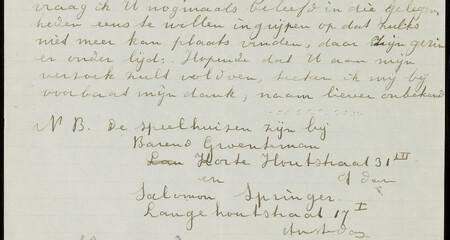 vraag ik U nogmaals beleefd in die gelegen
heden eens te willen ingrijpen op dat zulks
niet meer kan plaats vinden, daar zijn gezin
er onder lijdt. Hopende dat U aan mijn
verzoek zult voldoen, teeken ik mij bij
voorbaat mijn dank, naam liever onbekend
N B. de speelhuizen zijn bij
Barend Groenteman
Lan Korte Houtstraat 31 III
en A'dam
Salomon Springer
Lange houtstraat 17 I
Amsterdam